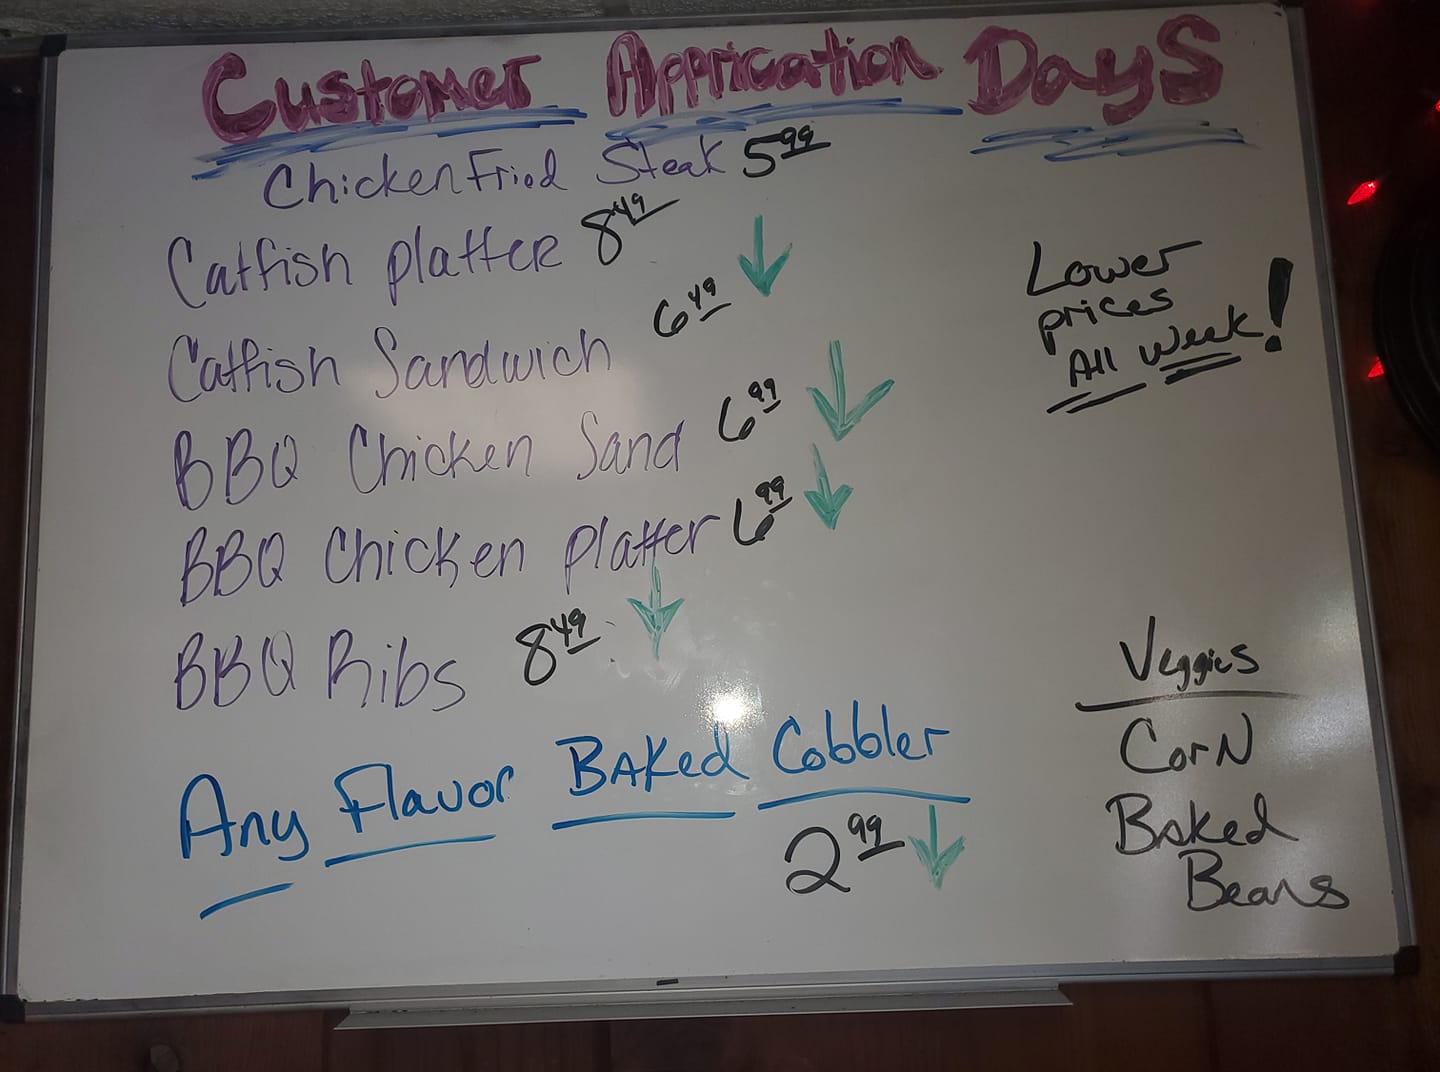 Customer Apprication Days
Chicken Fried Steak 5.99
Catfish platter 8.49
Catfish Sandwich 6.49
BBQ Chicken Sand 6.99
BBQ Chicken platter 6.99
BBQ Ribs 8.49
Any Flavor Baked Cobbler
2.99
Lower
prices
All Week!
Veggies
Corn
Baked
Beans